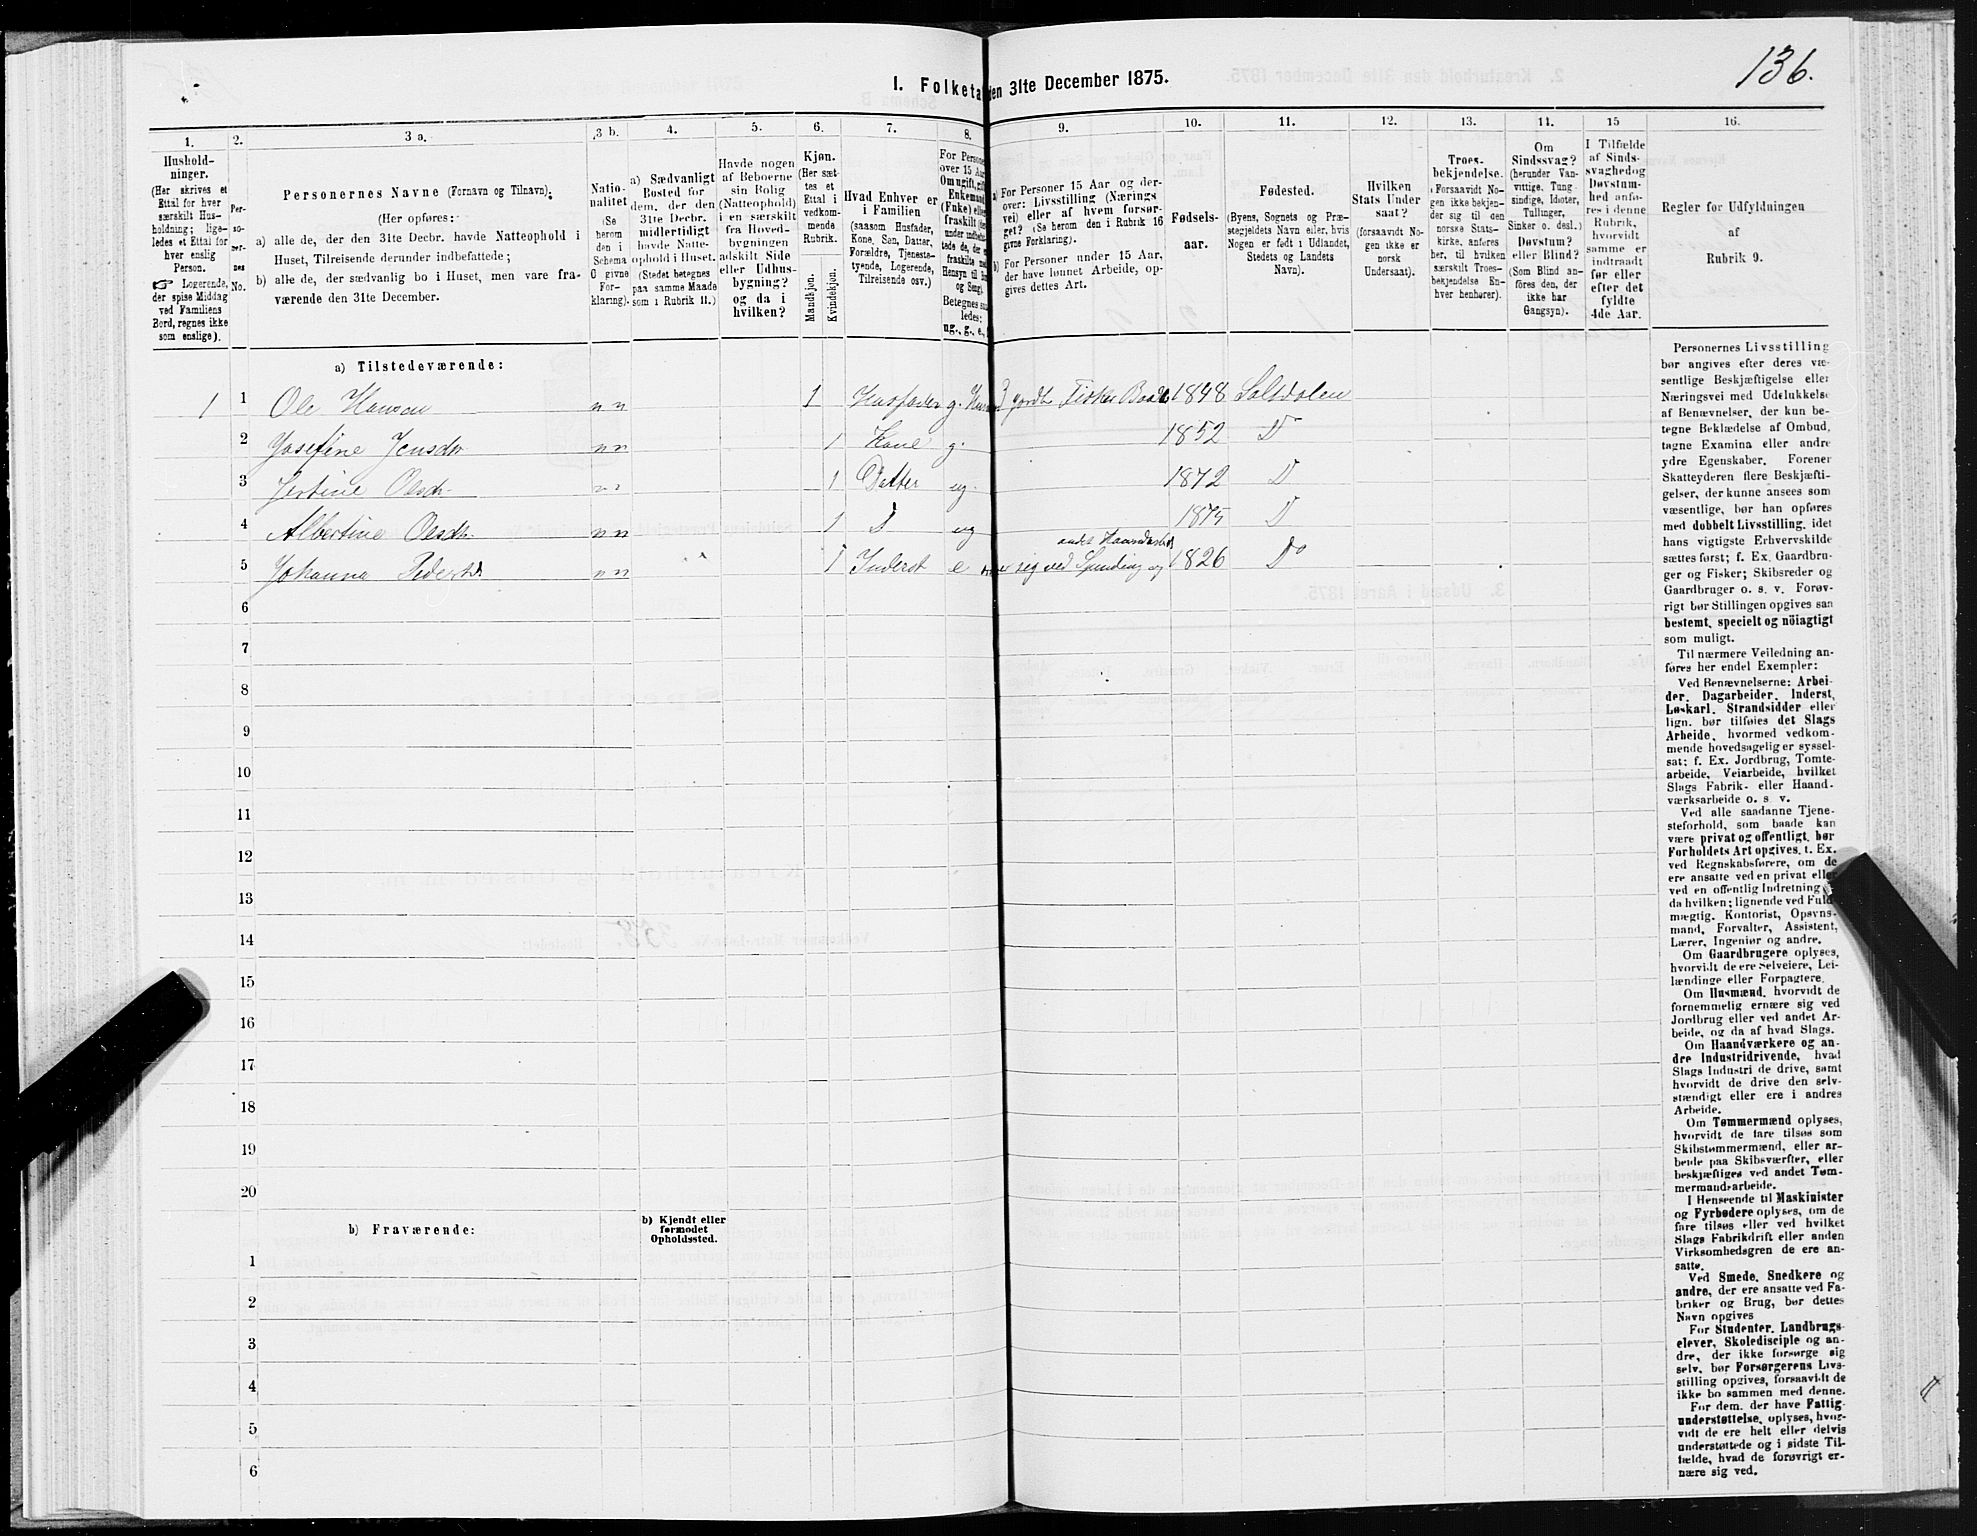 136.
I. Folketa den 31te December 1875.
1. 2. 3 a. 3 b. 4. 5. 6. 7. 8. 9. 10. 11. 12. 13. 14. 15 16.
Hushold-
ninger.
(Her skrives et
Ettal for hver
særskilt Hus-
holdning; lige-
ledes et Ettal for
hver enslig
Person.
☞ Logerende,
der spise Middag
ved Familiens
Bord, regnes ikke
som enslige).
Per-
so-
ner-
nes
No.
Personernes Navne (Fornavn og Tilnavn).
(Her opføres:
a) alle de, der den 31te Decbr. havde Natteophold i
Huset, Tilreisende derunder indbefattede;
b) alle de, der sædvanlig bo i Huset, men vare fra-
værende den 31te December.
Natio-
nalitet
(Se
herom
den i
Schema
C givne
For-
klaring).
a) Sædvanligt
Bosted for
dem, der den
31te Decbr.
midlertidigt
havde Natte-
ophold i Huset.
(Stedet betegnes
paa samme Maade
som i Rubrik 11.)
Havde nogen
af Beboerne
sin Bolig
(Natteophold)
i en særskilt
fra Hoved-
bygningen
adskilt Side
eller Udhus-
bygning?
og da i
hvilken?
Kjøn.
(Her sæt-
tes et
Ettal i
vedkom-
mende
Rubrik.
Mandkjøn.
Kvindekjøn.
Hvad Enhver er
i Familien
(saasom Husfader,
Kone, Søn, Datter,
Forældre, Tjeneste-
tyende, Logerende,
Tilreisende osv.)
For Persone
over 15 Aa
Om ugift, gift
Enkemand
(Enke) elle
fraskilt
under indbefat-
tede de, der e
fraskilte
Hensyn til
og Seng).
Betegnes saa
ledes:
ug., g., e.,
a) For Personer 15 Aar og der-
over: Livsstilling (Nærings
vei) eller af hvem forsør-
get? (Se herom den i Rubrik 16
givne Forklaring).
b) For Personer under 15 Aar,
der have lønnet Arbeide, op-
gives dettes Art.
Fødsels-
aar.
Fødested.
(Byens, Sognets og Præ-
stegjeldets Navn eller, hvis
Nogen er født i Udlandet,
Stedets og Landets
Navn).
Hvilken
Stats Under
saat?
(forsaavidt No-
gen ikke er
norsk
Undersaat).
Troes-
bekjendelse.
(Forsaavidt No-
gen ikke bekjen-
der sig til den
norske Stats-
kirke, anføres
her, til hvilken
særskilt Troes-
bekjendelse En-
hver henhører).
Om
Sindssvag?
(herunder Van-
vittige, Tung-
sindige, Idioter,
Tullinger,
Sinker o. desl.)
Døvstum?
eller Blind?
(Som Blind an-
føres den, der
ikke har
Gangsyn).
I Tilfælde
af Sinds-
svaghed og
Døvstum-
hed anfø-
res i denne
Rubrik,
hvorvidt
samme er
indtraadt
før eller
efter det
fyldte
4de Aar.
Regler for Udfyldningen
af
Rubrik 9.
a) Tilstedeværende:
1 1 Ole Hansen nn 1 Husfader g. Fisker 1848 Saltdalen
2 Josefine Jensdtr nn 1 Kone g. 1852 D
3 Olsdtr 1 Datter ug. 1872 D
4 Albertine Olsdtr. nn 1 D ug 1875 D
5 Johanna Pedersdtr nn 1 Inderst e sig ved Spinding og 1826 Do
andet
6
7
8
9
10
11
12
13
14
15
16
17
18
19
20
b) Fraværende: b) Kjendt eller
formodet
Opholdssted.
1
2
3
4
5
6
Personernes Livsstilling
bør angives efter deres væ-
sentlige Beskjæftigelse eller
Næringsvei med Udelukkelse
af Benævnelser, der kun be-
tegne Beklædelse af Ombud,
tagne Examina eller andre
ydre Egenskaber. Forener
Skatteyderen flere Beskjæfti-
gelser, der kunne ansees som
væsentlige, bør han opføres
med dobbelt Livsstilling, idet
hans vigtigste Erhvervskilde
sættes først; f. Ex. Gaardbru-
ger og Fisker; Skibsreder og
Gaardbruger o. s. v. Forøv-
rigt bør Stillingen opgives saa
bestemt, specielt og nöiagtigt
som muligt.
Til nærmere Veiledning an-
føres her endel Exempler:
Ved Benævnelserne: Arbei-
der, Dagarbeider, Inderst,
Løskarl, Strandsidder eller
lign. bør tilføies det Slags
Arbeide, hvormed vedkom-
mende hovedsagelig er syssel-
sat; f. Ex. Jordbrug, Tomte-
arbeide, Veiarbeide, hvilket
Slags Fabrik- eller Haand-
værksarbeide o. s. v.
Ved alle saadanne Tjene-
steforhold, som baade kan
være privat og offentligt, bør
Forholdets Art opgives, f. Ex.
ved Regnskabsførere, om de
ere ansatte ved en privat eller
ved en offentlig Indretning og
da hvilken; lignende ved Fuld-
mægtig, Kontorist, Opsyns-
mand, Forvalter, Assistent,
Lærer, Ingeniør og andre.
Om Gaardbrugere oplyses,
hvorvidt de ere Selveiere, Lei-
lændinge eller Forpagtere.
Om Husmænd, hvorvidt de
fornemmelig ernære sig ved
Jordbrug eller ved andet Ar-
beide, og da af hvad Slags.
Om Haandværkere og an-
dre Industridrivende, hvad
Slags Industri de drive, samt
hvorvidt de drive den selv-
stændigt eller ere i andres
Arbeide.
Om Tømmermænd oplyses,
hvorvidt de fare tilsøs som
Skibstømmermænd, eller ar-
beide paa Skibsværfter, eller
beskjæftiges ved andet Tøm-
mermandsarbeide.
I Henseende til Maskinister
og Fyrbødere oplyses, om de
fare tilsøs eller ved hvilket
Slags Fabrikdrift eller anden
Virksomhedsgren de ere an-
satte.
Ved Smede, Snedkere og
andre, der ere ansatte ved Fa-
briker og Brug, bør dettes
Navn opgives
For Studenter, Landbrugs-
elever, Skoledisciple og an-
dre, der ikke forsørge sig
selv, bør Forsørgerens Livs-
stilling opgives, forsaavidt de
ikke bo sammen med denne.
For dem, der have Fattig-
understøttelse, oplyses, hvor-
vidt de ere helt eller delvis
understøttede og i sidste Til-
fælde, hvad de forøvrigt er-
nære sig ved.